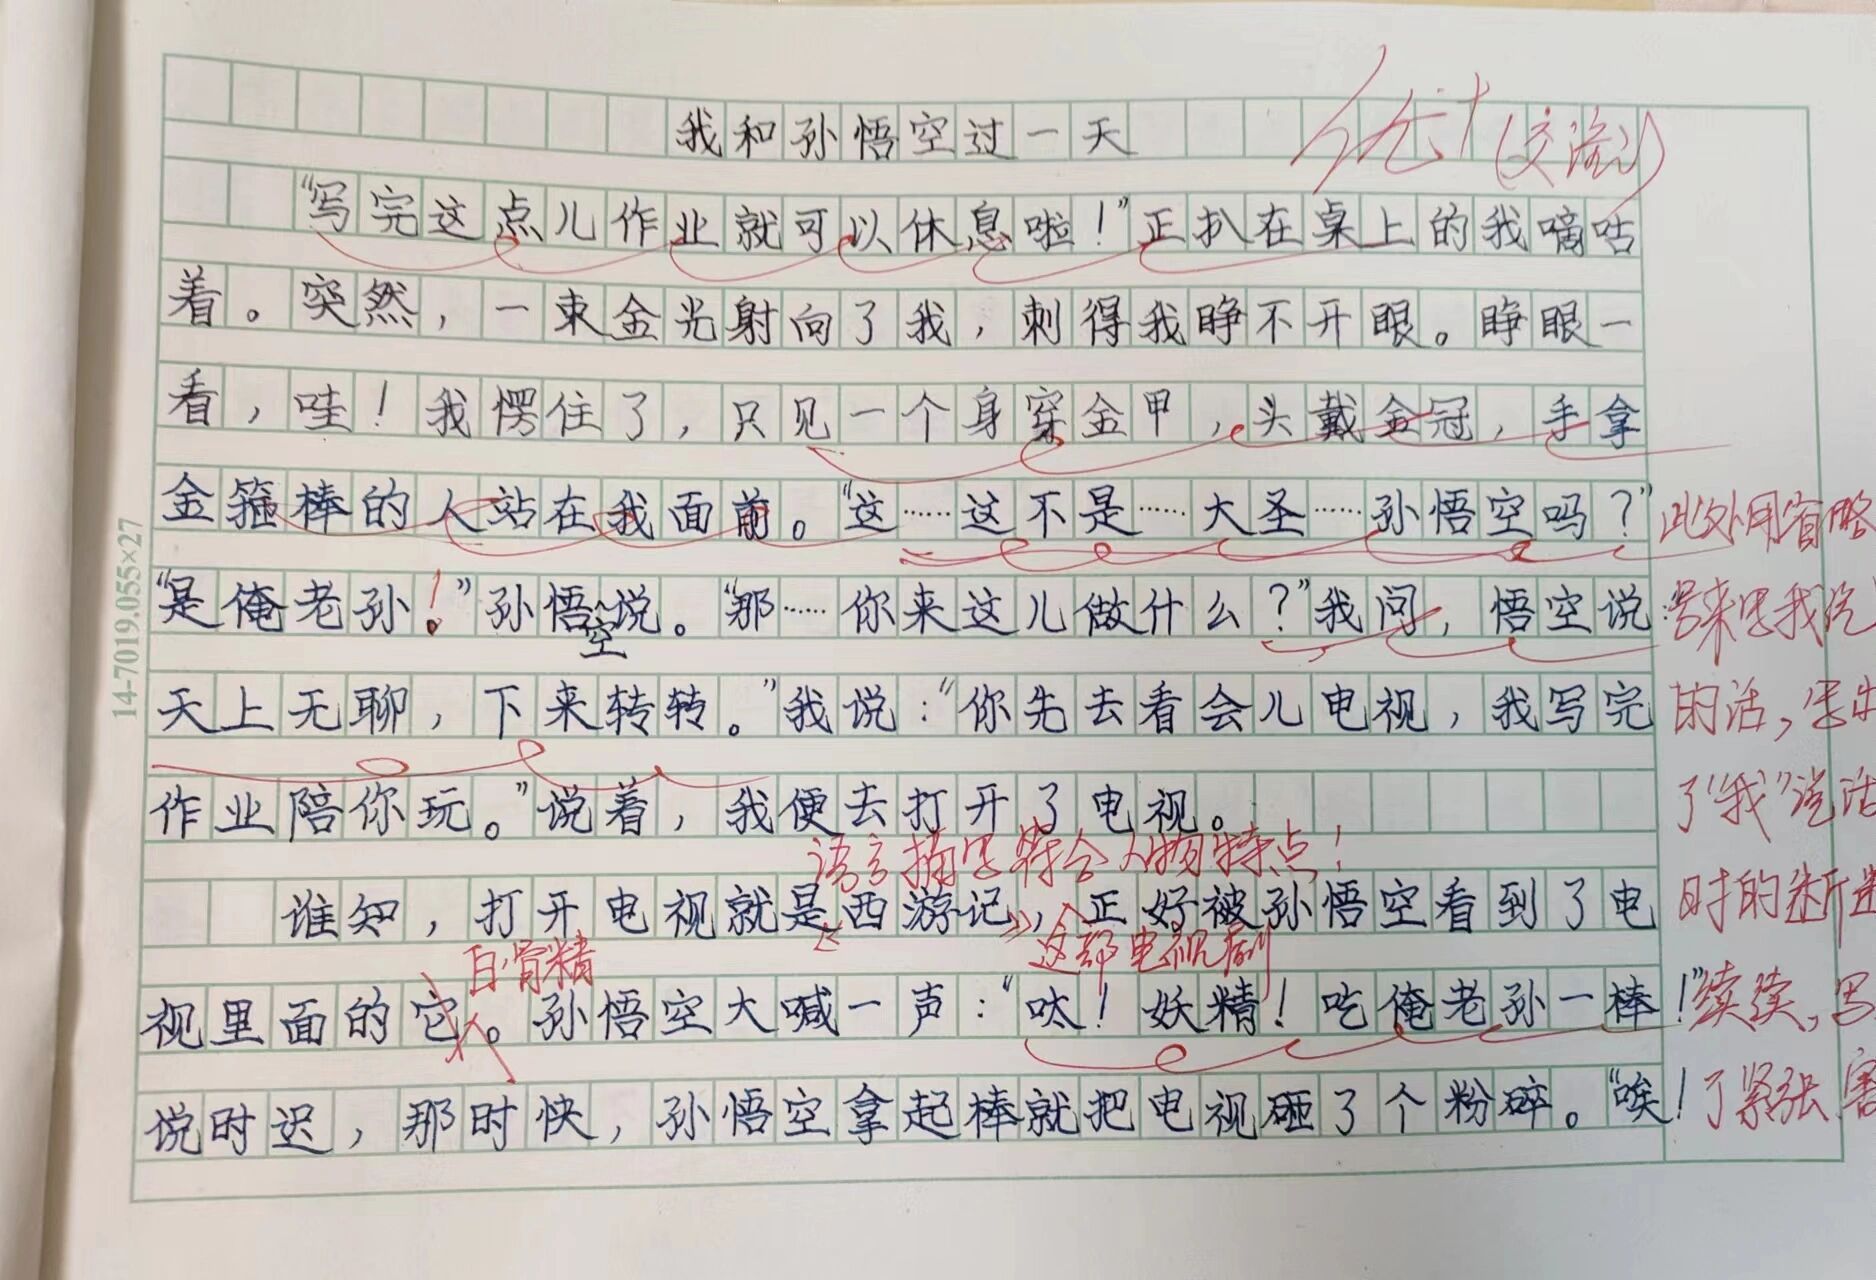 我和孙悟空过一天
优+(交流)
“写完这点儿作业就可以休息啦！”正扒在桌上的我嘀咕
着。突然，一束金光射向了我，刺得我睁不开眼。睁眼一
看，哇！我愣住了，只见一个身穿金甲，头戴金冠，手拿
金箍棒的人站在我面前。“这……这不是……大圣……孙悟空吗？”
此处用省略
“是俺老孙！”孙悟空说。“那……你来这儿做什么？”我问，悟空说：
号来写我说
天上无聊，下来转转。”我说：“你先去看会儿电视，我写完
的话，写出
作业陪你玩。”说着，我便去打开了电视。
了“我”说话
语言描写符合人物特点！
谁知，打开电视就是《西游记》，正好被孙悟空看到了电
时的断断
白骨精
这部电视剧
视里面的它。孙悟空大喊一声：“呔！妖精！吃俺老孙一棒！”
续续，写
说时迟，那时快，孙悟空拿起棒就把电视砸了个粉碎。“唉！
了紧张害
14-7019.055×27